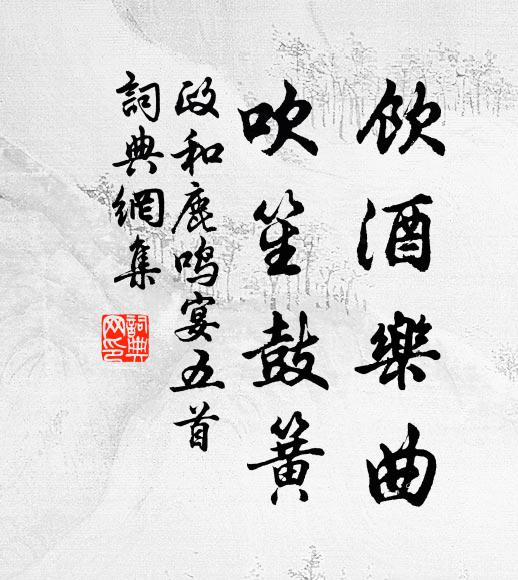 飲酒樂曲
吹笙鼓簧
政和鹿鳴宴五首
詞典網集
詞典网印